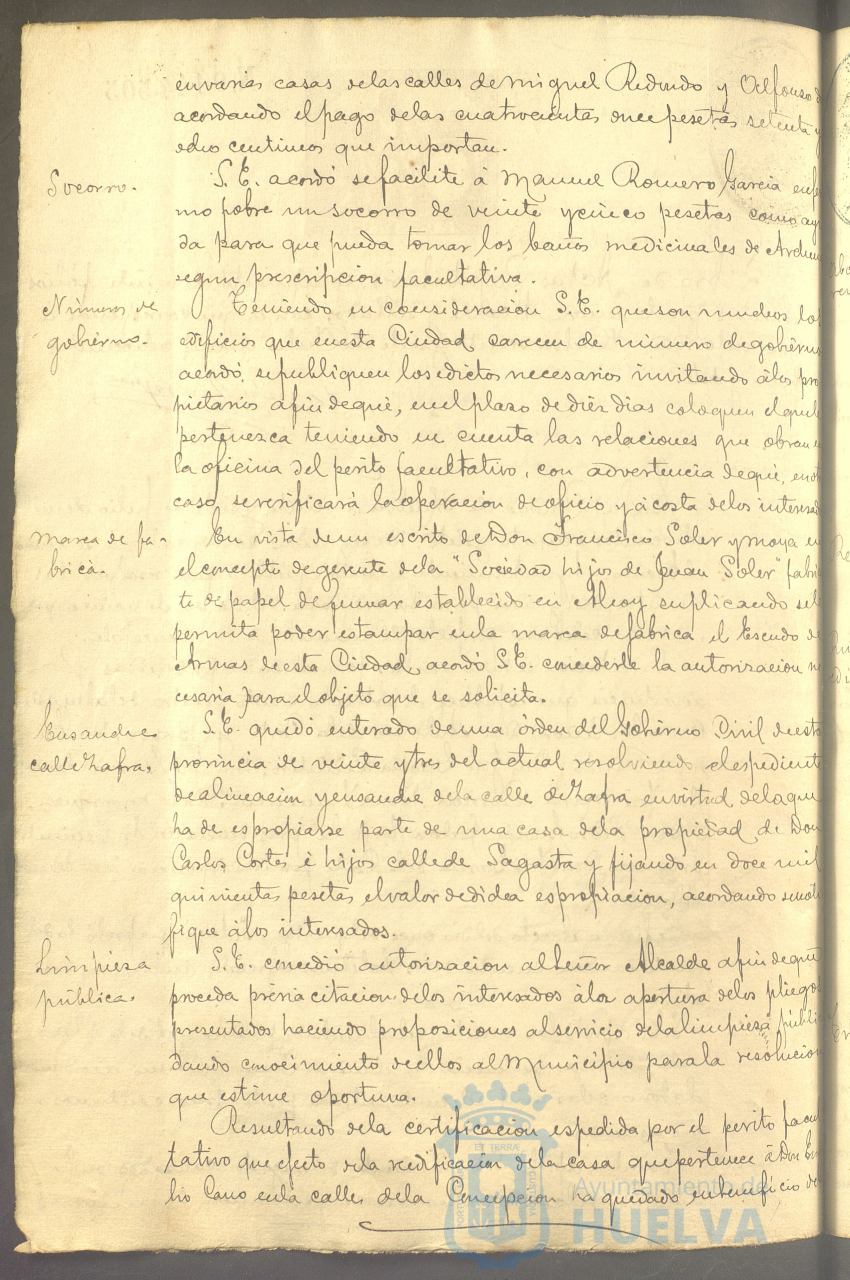 en varias casas de las calles de Miguel Redondo y Alfonso
acordando el pago de las cuatrocientas once pesetas setenta y
ocho centimos que importan.
Socorro.
S. E. acordó se facilite á Manuel Romero Garcia enfer
mo pobre un socorro de veinte y cinco pesetas como ayu
da para que pueda tomar los baños medicinales de Archena
segun prescripcion facultativa.
Números de
gobierno.
Teniendo en consideracion S. E. que son muchos los
edificios que en esta Ciudad carecen de número de gobierno
acordó, se publiquen los edictos necesarios invitando á los pro
pietarios a fin de que, en el plazo de diéz dias coloquen el que les
pertenezca teniendo en cuenta las relaciones que obran en
la oficina del perito facultativo, con advertencia de que, en otro
caso, se verificará la operacion de oficio y á costa de los interesad
Marca de fa-
brica.
En vista de un escrito de Don Francisco Soler y Moya en
el concepto de gerente de la "Sociedad hijos de Juan Soler" fabri
te de papel de fumar establecido en Alcoy suplicando se le
permita poder estampar en la marca de fábrica el Escudo de
Armas de esta Ciudad, acordó S. E. concederle la autorizacion ne
cesaria para el objeto que se solicita.
Ensanche
calle Zafra.
S. E. quedó enterado de una órden del Gobierno Civil de esta
provincia de veinte y tres del actual resolviendo el espediente
de alineacion y ensanche de la calle de Zafra en virtud de la que
ha de espropiarse parte de una casa de la propiedad de Don
Carlos Cortés é hijos calle de Sagasta y fijando en doce mil
quinientas pesetas el valor de dicha espropiacion, acordando se noti
fique á los interesados.
Limpieza
pública.
S. E. concedió autorizacion al Señor Alcalde a fin de que
proceda prévia citacion de los interesados á la apertura de los pliegos
presentados haciendo proposiciones al servicio de la limpieza públic
dando conocimiento de ellos al Municipio para la resolucion
que estime oportuna.
Resultando de la certificacion espedida por el perito facul
tativo que efecto de la redificacion de la casa que pertenece á Don
Cano en la calle de la Concepcion ha quedado en beneficio de
Ayuntamiento de
HUELVA